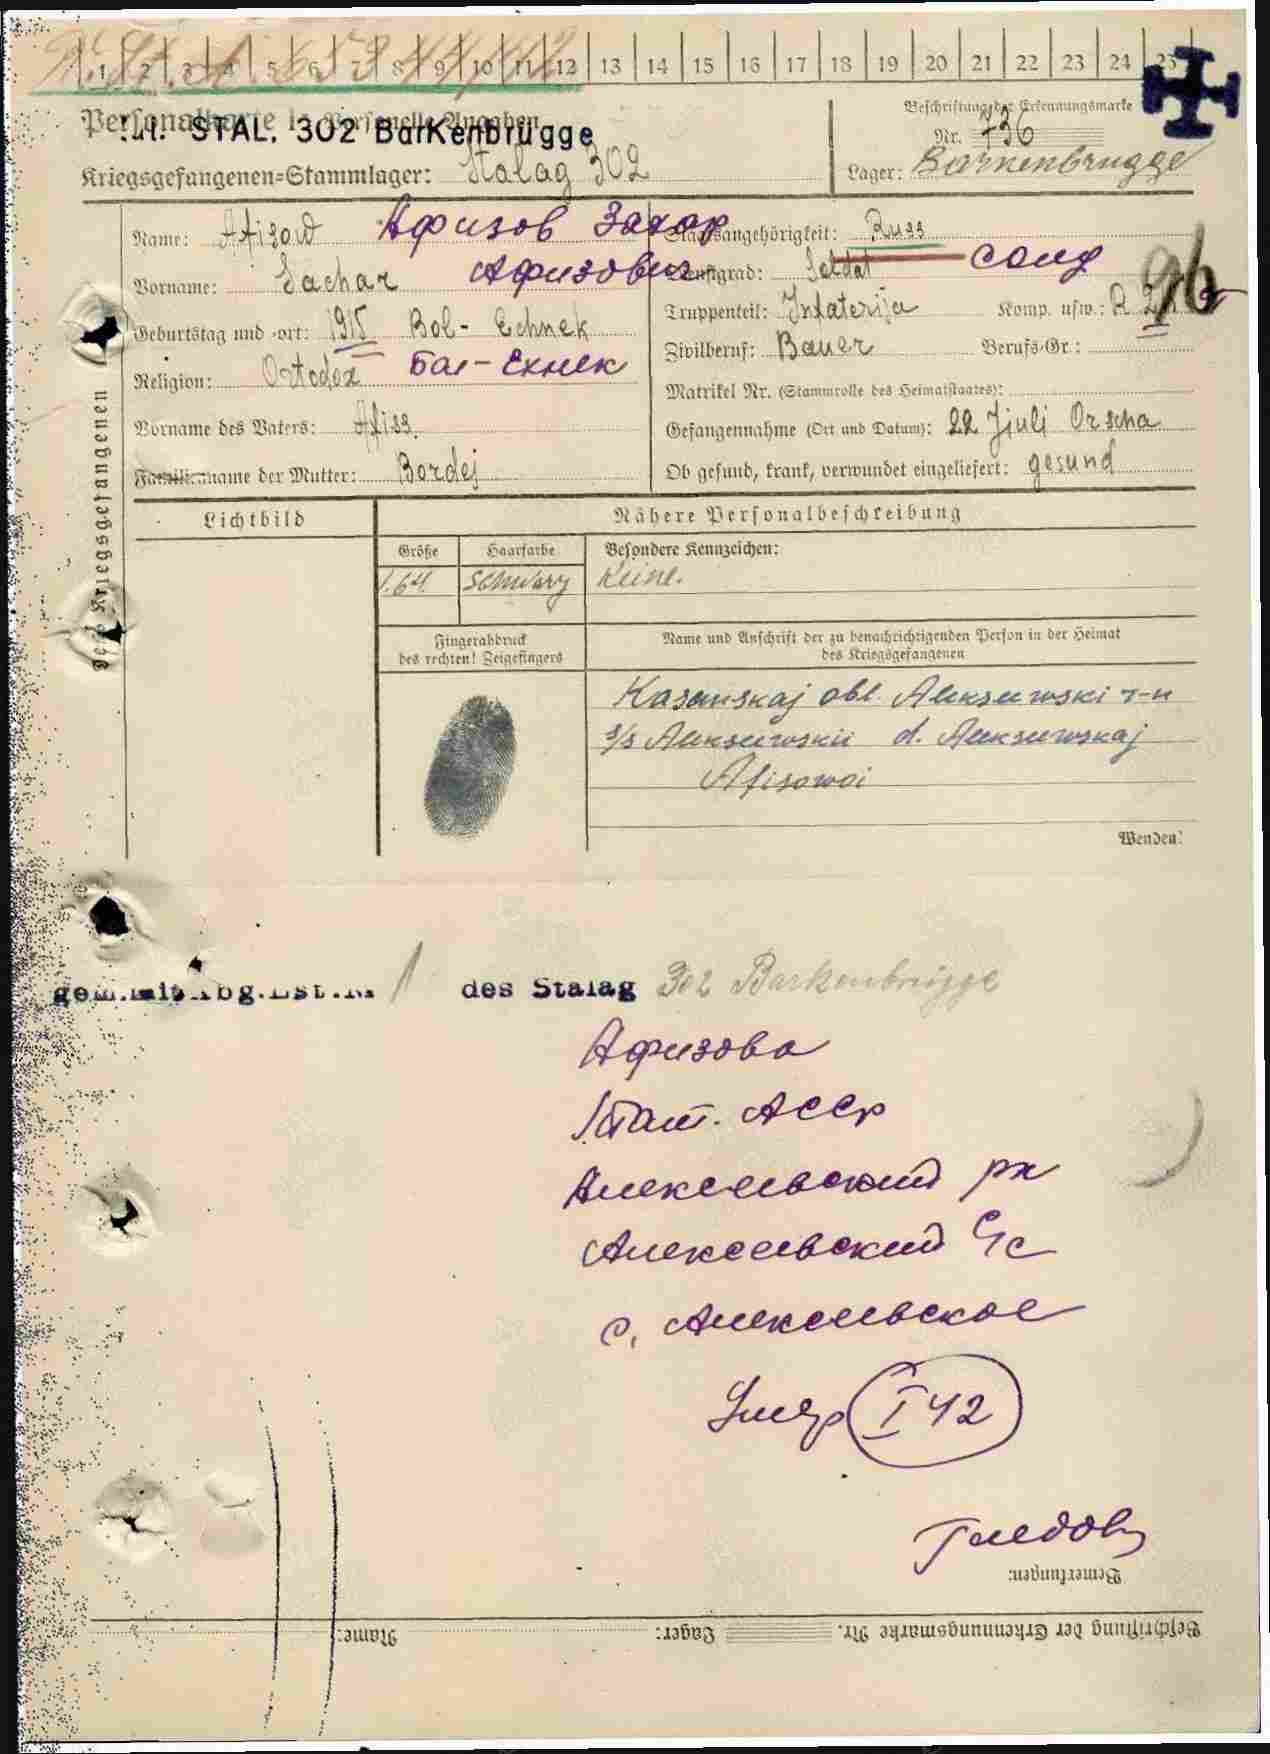 1 2 3 4 5 6 7 8 9 10 11 12 13 14 15 16 17 18 19 20 21 22 23 24 25
Personalkarte I: Personelle Angaben
STAL. 302 BarKenbrügge
Kriegsgefangenen-Stammlager: Stalag 302
Beschriftung der Erkennungsmarke
Nr. 736
Lager: Barkenbrügge
des Kriegsgefangenen
Name: Afisow Афизов Захар
Vorname: Sachar Афизович
Geburtstag und -ort: 1915 Bol- Echnek
Religion: Ortodox Бал-Ехнек
Vorname des Vaters: Afiss.
Familienname der Mutter: Bordej
Staatsangehörigkeit: Russ
Dienstgrad: Soldat солд
Truppenteil: Infaterija Komp. usw.: R
Zivilberuf: Bauer Berufs-Gr.:
Matrikel Nr. (Stammrolle des Heimatstaates):
Gefangennahme (Ort und Datum): 22 Jjuli Orscha
Ob gesund, krank, verwundet eingeliefert: gesund
Lichtbild
Nähere Personalbeschreibung
Größe Haarfarbe Besondere Kennzeichen:
1.64 schwarz Keine.
Fingerabdruck
des rechten! Zeigefingers
Name und Anschrift der zu benachrichtigenden Person in der Heimat
des Kriegsgefangenen
Kasanskaj obl. Aleksewski r-n
s/s Aleksewskii d. Aleksewskaj
Afisowoi
Wenden!
des Stalag 302 Barkenbrügge
Афизова
Тат. АССР
Алексеевский рн
Алексеевский с/с
с. Алексеевское
Умер I 42
Bemerkungen:
Name: Lager: Beschriftung der Erkennungsmarke Nr.